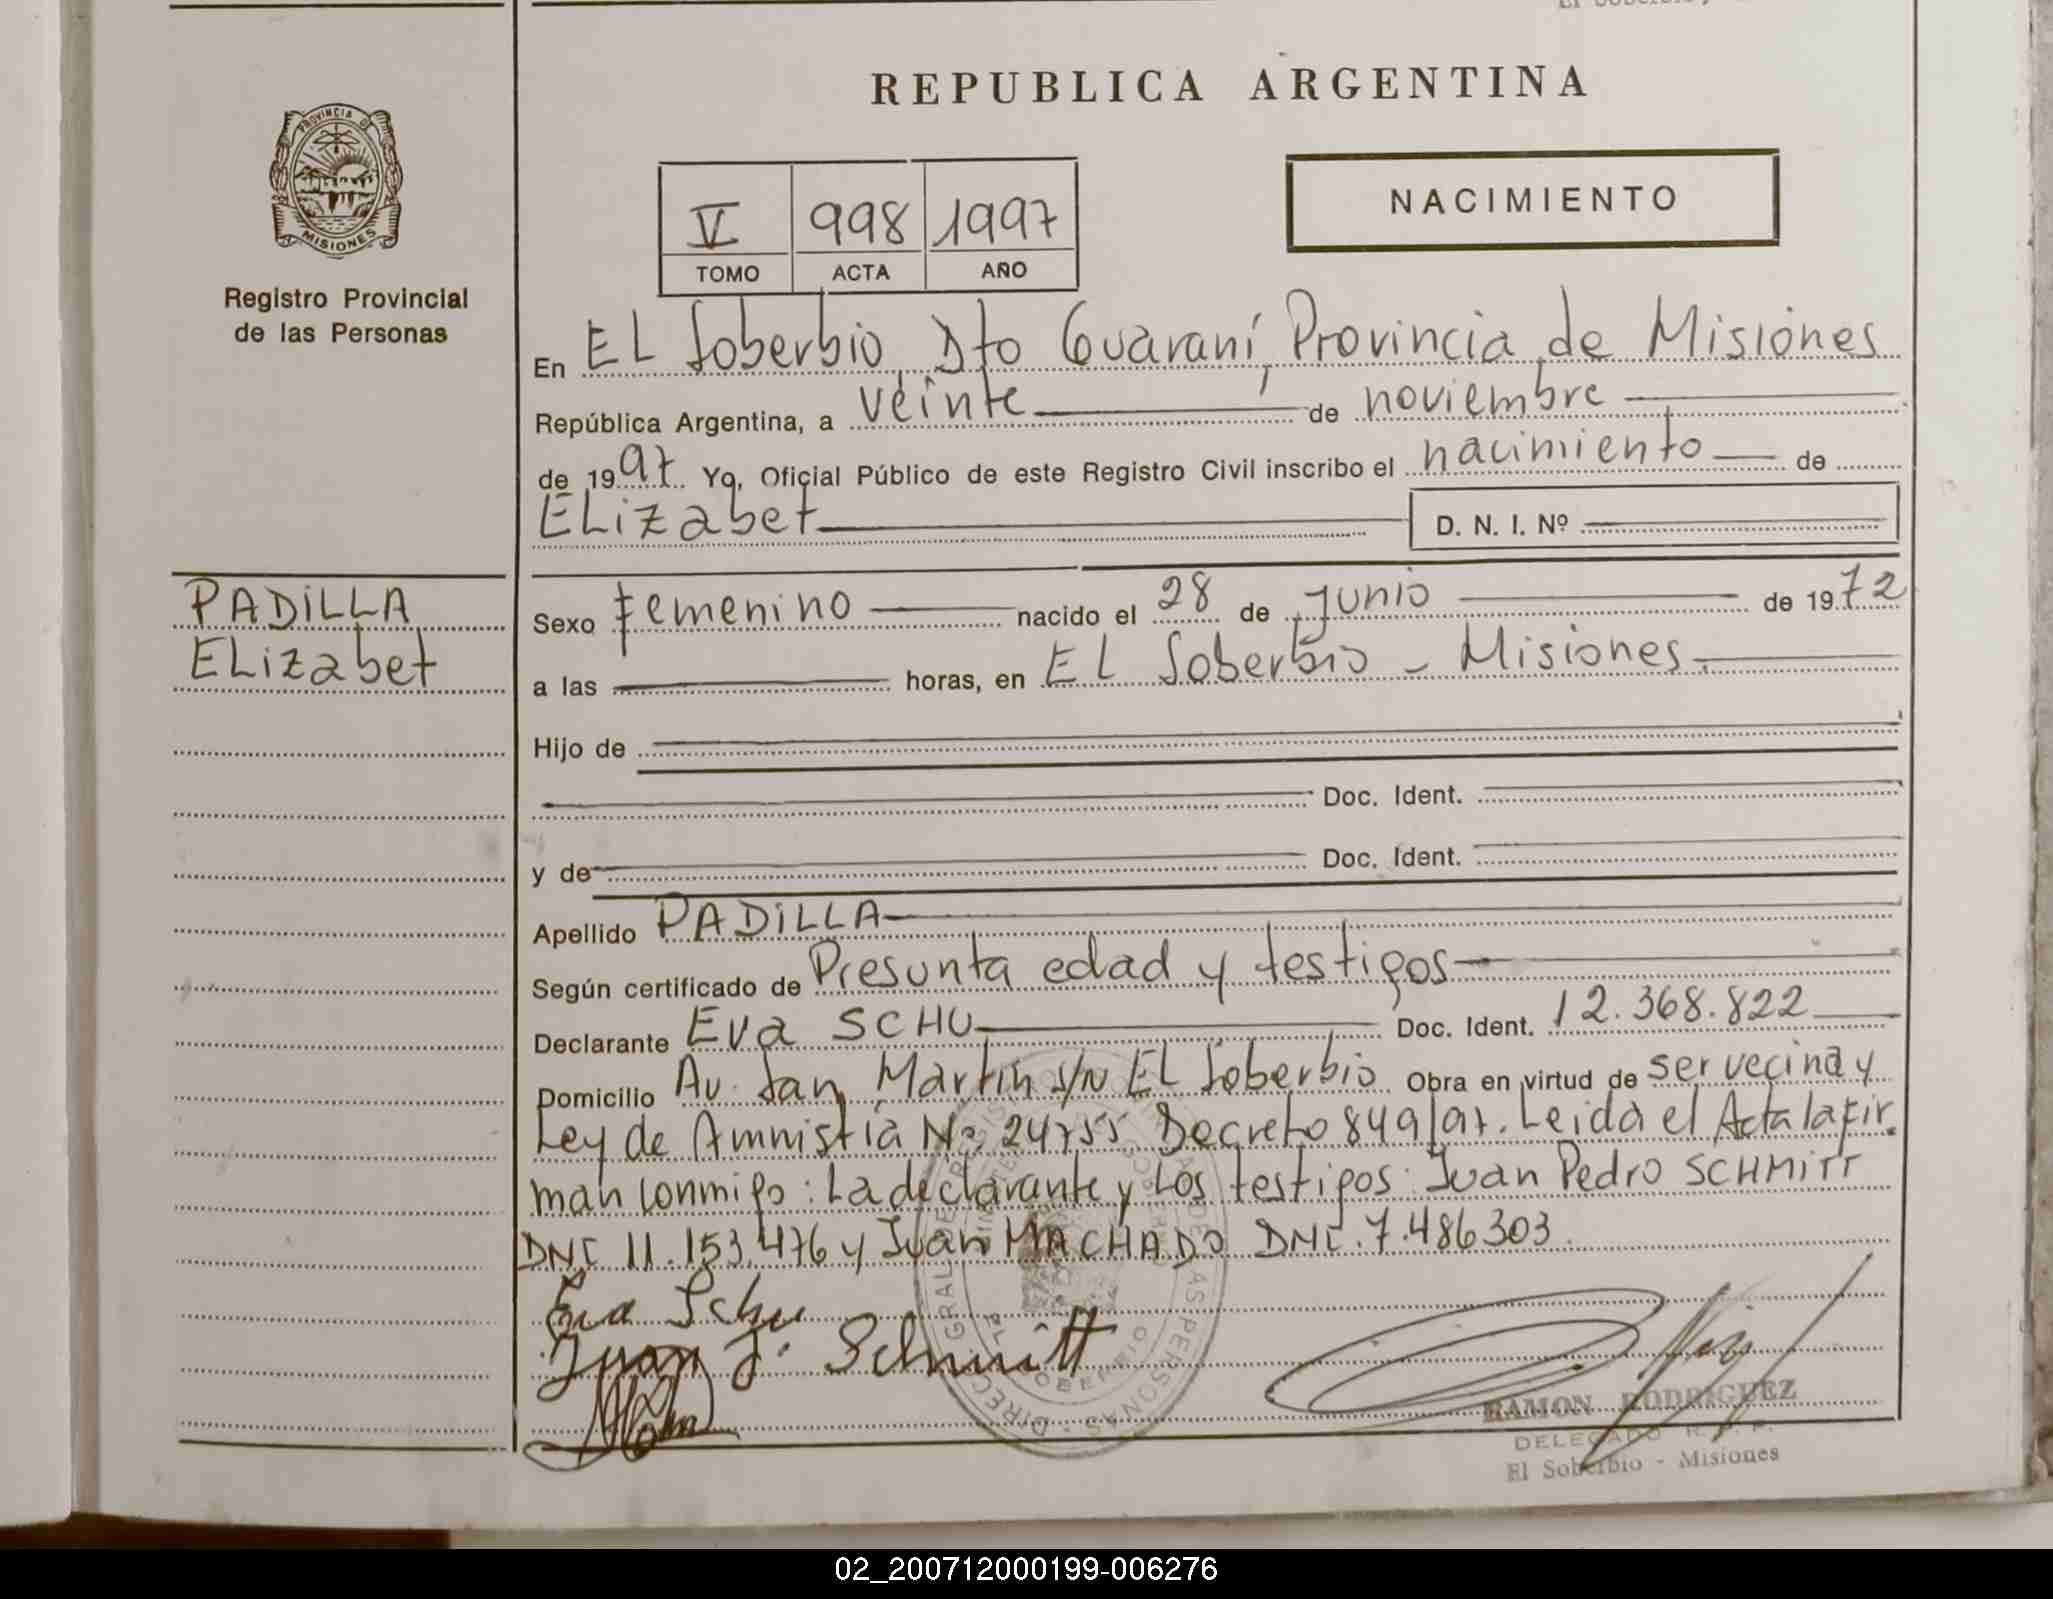 REPUBLICA ARGENTINA
PROVINCIA DE
MISIONES
Registro Provincial
de las Personas
V 998 1997
TOMO ACTA AÑO
NACIMIENTO
En EL Soberbio, Dto Guaraní, Provincia de Misiones
República Argentina, a veinte de noviembre
de 1997. Yo, Oficial Público de este Registro Civil inscribo el nacimiento de
ELizabet D. N. I. Nº
PADILLA
ELizabet
Sexo femenino nacido el 28 de junio de 1972
a las horas, en EL Soberbio - Misiones.
Hijo de
Doc. Ident.
y de Doc. Ident.
Apellido PADILLA
Según certificado de Presunta edad y testigos
Declarante Eva SCHU Doc. Ident. 12.368.822
Domicilio Av. San Martín s/N EL Soberbio Obra en virtud de ser vecina y
Ley de Amnistía Nº 24755 Decreto 849/97. Leida el Acta la fir
man conmigo: La declarante y Los testigos: Juan Pedro SCHMITT
DNI 11.153.476 y Juan MACHADO DNI. 7.486303.
Eva Schu
Juan P. Schmitt
RAMON RODRIGUEZ
DELEGADO R. P. P.
El Soberbio - Misiones
02_200712000199-006276